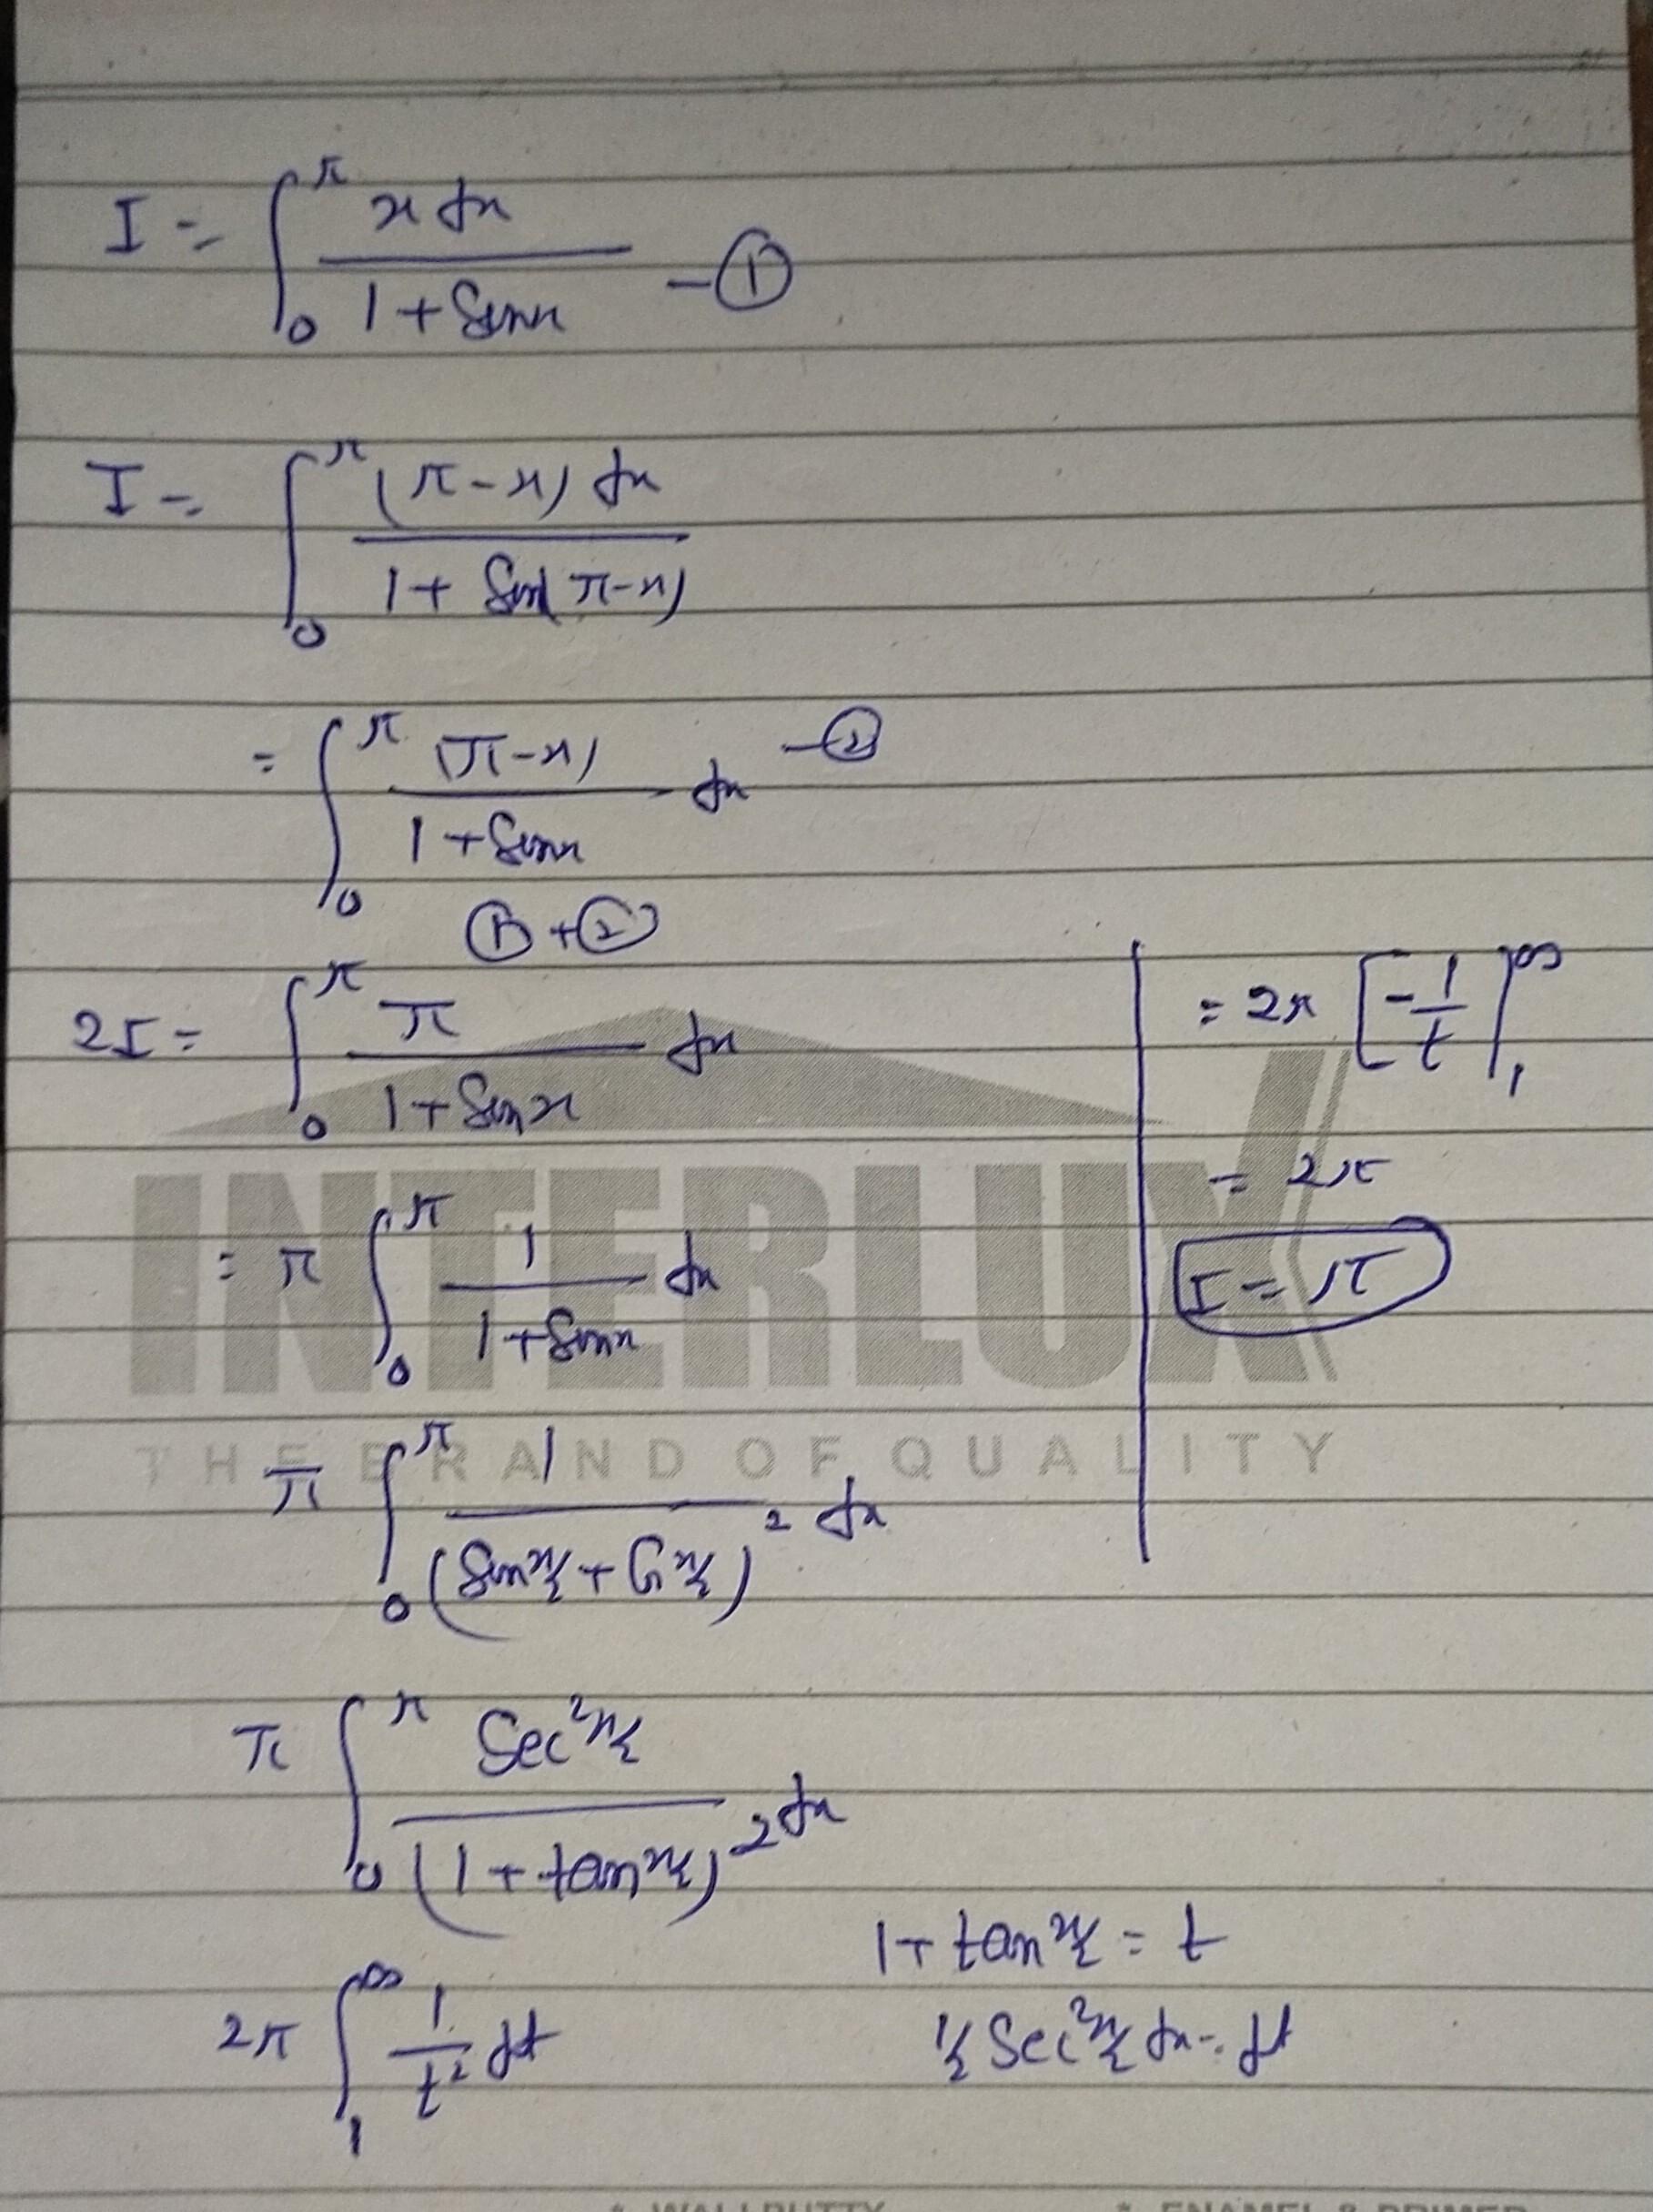 I = ∫₀^π x dx / (1 + Sinx) — ①
I = ∫₀^π (π-x) dx / (1 + Sin(π-x))
= ∫₀^π (π-x) / (1 + Sinx) dx — ②
① + ②
2I = ∫₀^π π / (1 + Sinx) dx
= π ∫₀^π 1 / (1 + Sinx) dx
π ∫₀^π 1 / (Sin x/2 + Cos x/2)² dx
π ∫₀^π Sec² x/2 / (1 + tan x/2)² dx
1 + tan x/2 = t
½ Sec² x/2 dx = dt
2π ∫₁^∞ 1/t² dt
= 2π [-1/t]₁^∞
= 2π
I = π
INTERLUX
THE BRAND OF QUALITY
* WALL PUTTY * ENAMEL & PRIMER